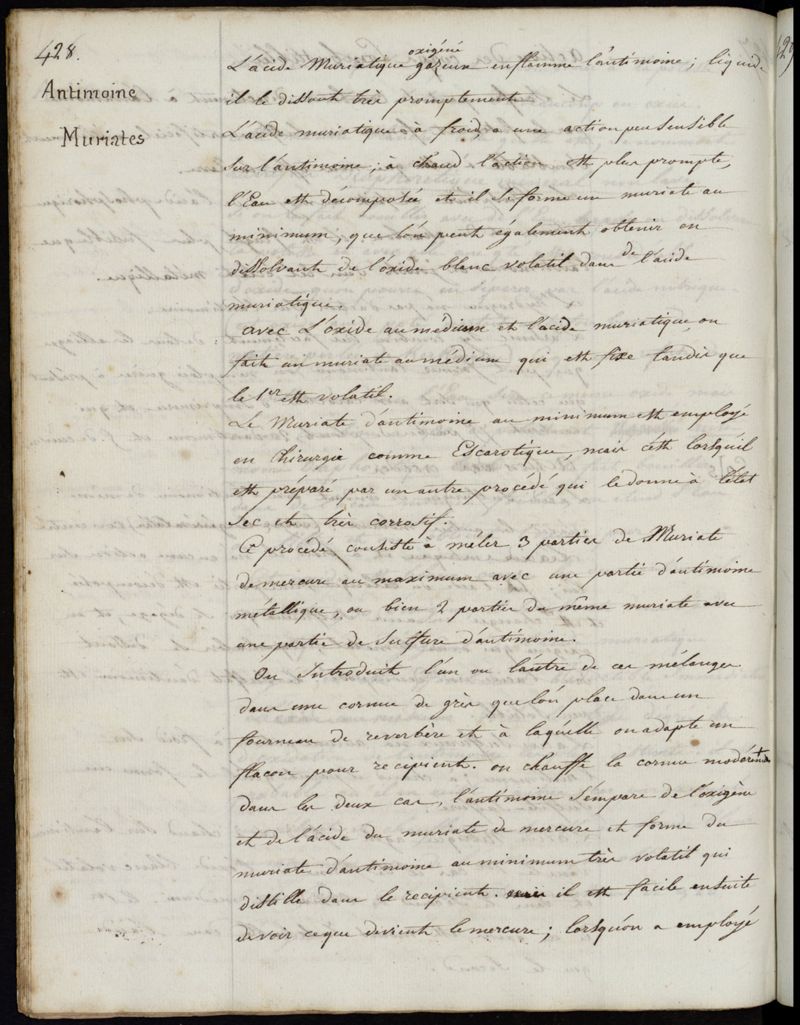 428.
Antimoine
Muriates
oxigéné
L'acide Muriatique gazeux enflamme l'antimoine; liquide
il le dissout très promptement
L'acide muriatique à froid, a une action peu sensible
sur l'antimoine; à chaud l'action est plus prompte,
l'Eau est décomposée et il se forme un muriate au
minimum, que l'on peut également obtenir en
dissolvant de l'oxide blanc volatil dans de l'acide
muriatique.
avec L'oxide au médium et l'acide muriatique, on
fait un muriate au médium qui est fixe tandis que
le 1er est volatil.
Le Muriate d'antimoine au minimum est employé
en chirurgie comme Escarotique, mais c'est lorsqu'il
est préparé par un autre procédé qui le donne à l'état
sec et très corrosif.
Ce procédé consiste à mêler 3 parties de Muriate
de mercure au maximum avec une partie d'antimoine
métallique, ou bien 2 parties du même muriate avec
une partie de sulfure d'antimoine.
On Introduit l'un ou l'autre de ces mélanges
dans une cornue de grès que l'on place dans un
fourneau de reverbère et à laquelle on adapte un
flacon pour recipient. on chauffe la cornue modérémt
dans les deux cas, l'antimoine s'empare de l'oxigène
et de l'acide du muriate de mercure et forme du
muriate d'antimoine au minimum très volatil qui
distille dans le recipient. il est facile ensuite
de voir ce que devient le mercure; lorsqu'on a employé